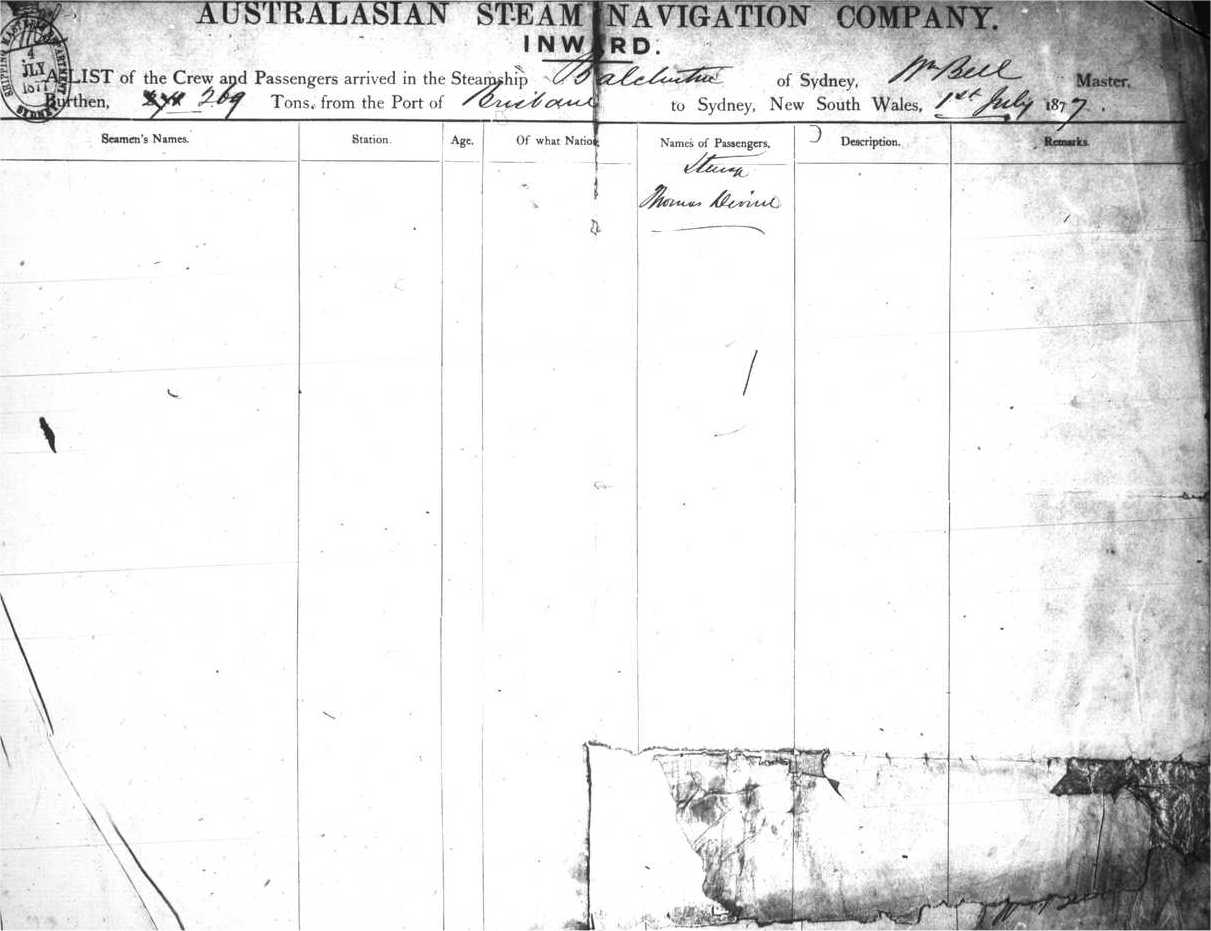 AUSTRALASIAN STEAM NAVIGATION COMPANY.
INWARD.
SHIPPING MASTER'S DEPARTMENT
4
JLY
1877
SYDNEY
A LIST of the Crew and Passengers arrived in the Steamship Balclutha of Sydney, Wm Bell Master,
Burthen, 269 Tons, from the Port of Brisbane to Sydney, New South Wales, 1st July 1877.
Seamen's Names. Station. Age. Of what Nation. Names of Passengers. Description. Remarks.
Thomas Devine
1